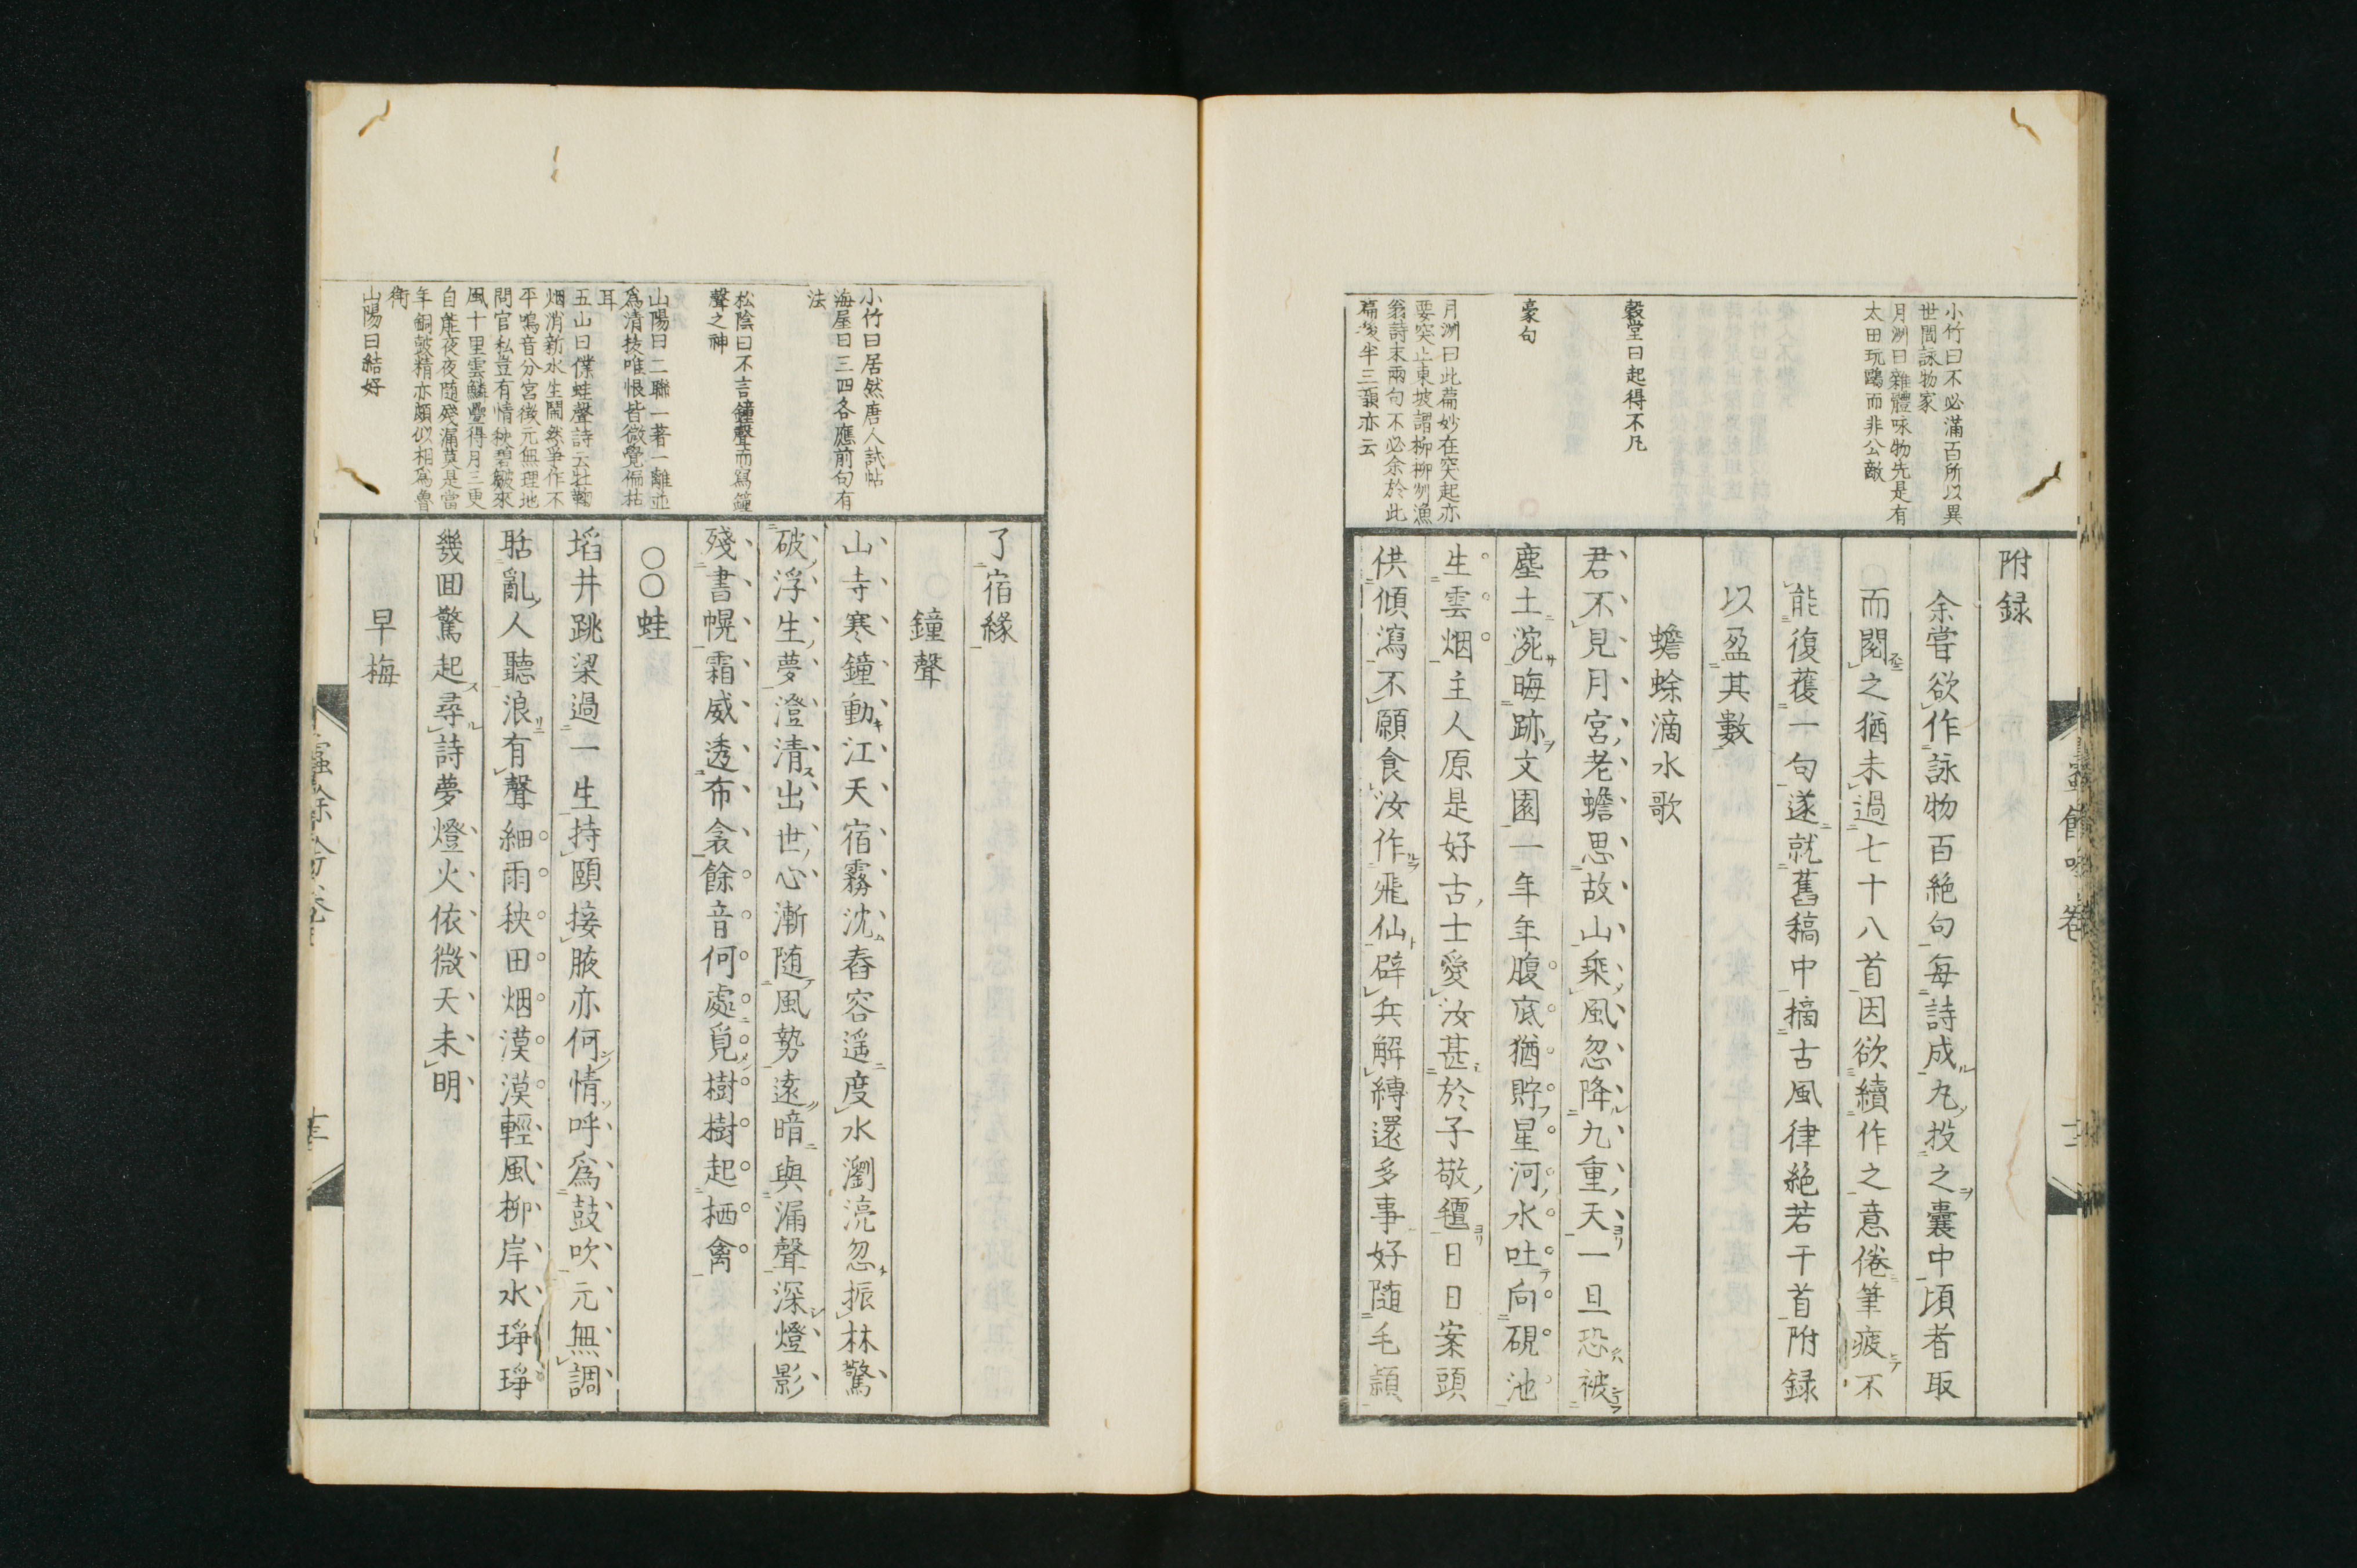 小竹曰不必滿百所以異
世間詠物家
月洲曰雜體咏物先是有
太田玩鷗而非公敵
縠堂曰起得不凡
豪句
月洲曰此篇妙在突起亦
要突止東坡謂柳柳州漁
翁詩末兩句不必余於此
篇後半三韻亦云
附録
余嘗欲作詠物百絶句每詩成丸投之嚢中頃者取
而閲之猶未過七十八首因欲續作之意倦筆疲不
能復獲一句遂就舊稿中摘古風律絶若干首附録
以盈其數
蟾蜍滴水歌
君不見月宮老蟾思故山乘風忽降九重天一旦恐被
塵土涴晦跡文園一年年腹底猶貯星河水吐向硯池
生雲烟主人原是好古士愛汝甚於子敬氊日日案頭
供傾瀉不願食汝作飛仙辟兵解縛還多事好随毛穎
小竹曰居然唐人試帖
海屋曰三四各應前句有
法
松陰曰不言鐘聲而寫鐘
聲之神
山陽曰二聯一著一離並
爲清抜唯恨皆微覺偏枯
耳
五山曰僕蛙聲詩云牡鞠
烟消新水生閙然爭作不
平鳴音分宮徴元無理地
問官私豈有情秧碧皺來
風十里雲鱗疊得月三更
自能夜夜随殘漏莫是當
年銅皷精亦頗似相爲魯
衛
山陽曰結好
了宿緣
○鐘聲
山寺寒鐘動江天宿霧沈舂容遥度水瀏湸忽振林驚
破浮生夢澄清出世心漸随風勢遠暗與漏聲深燈影
殘書幌霜威透布衾餘音何處覓樹樹起栖禽
○○蛙
埳井跳梁過一生持頤接腋亦何情呼爲鼓吹元無調
聒亂人聽浪有聲細雨秧田烟漠漠輕風柳岸水琤琤
幾回驚起尋詩夢燈火依微天未明
早梅